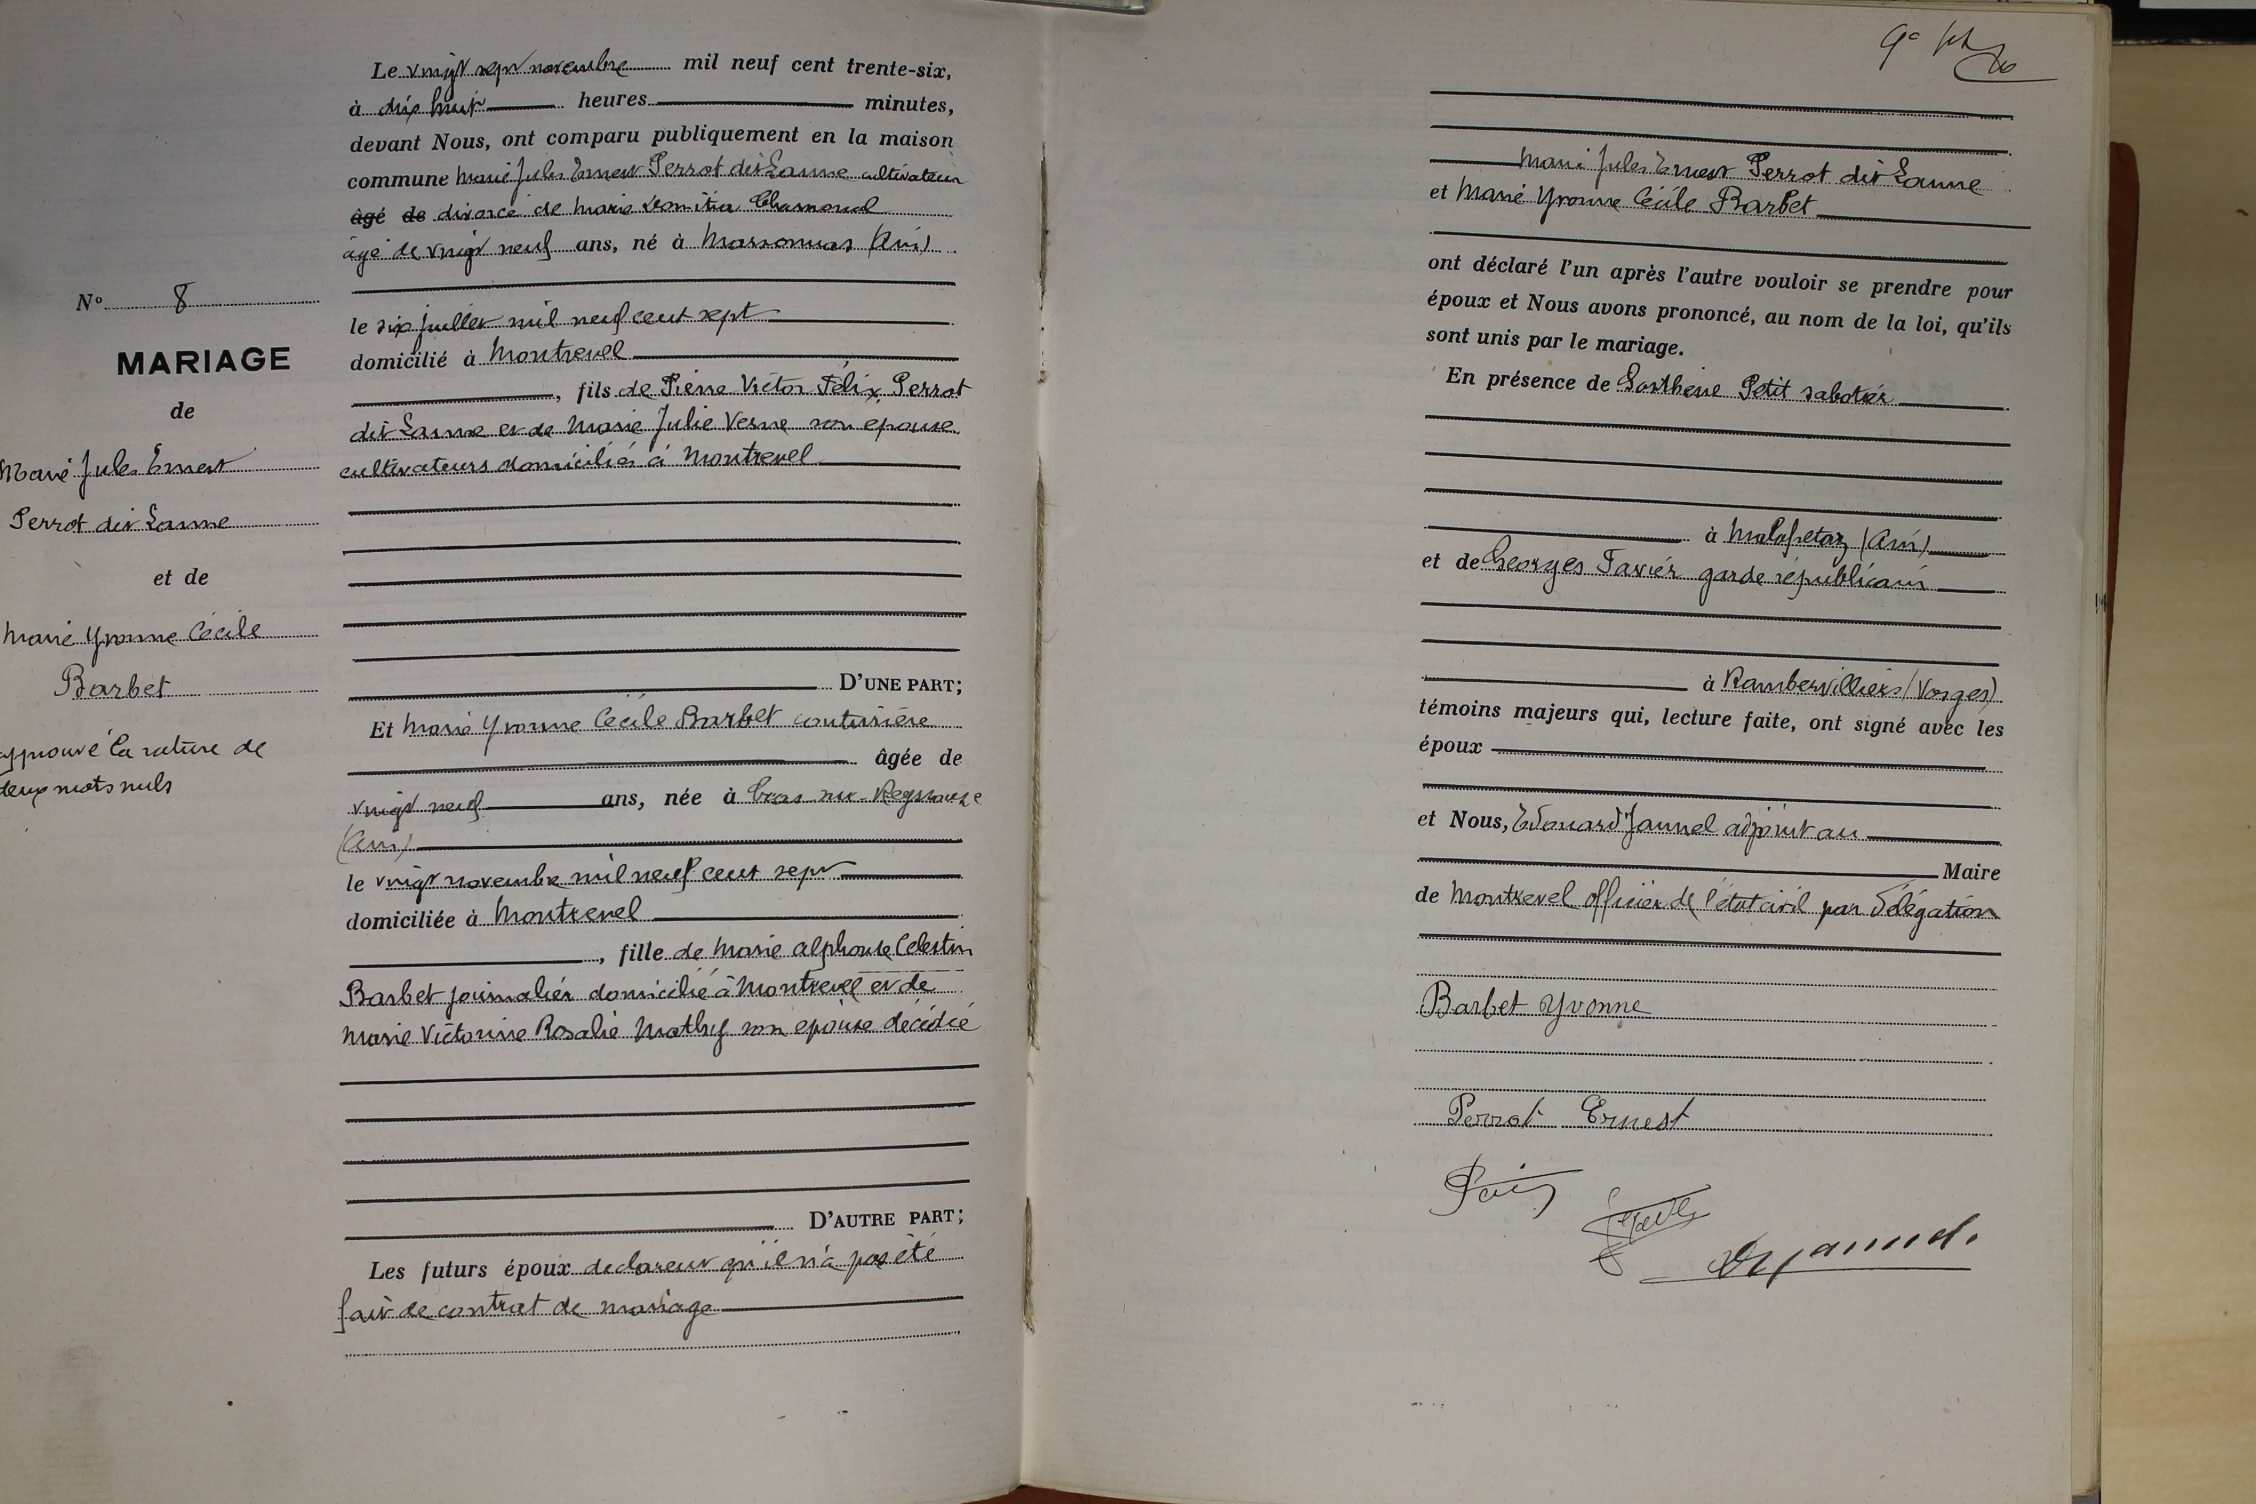 N° 8
MARIAGE
de
Marie Jules Ernest
Perrot dit Lanne
et de
Marie Yvonne Cécile
Barbet
approuvé la rature de
deux mots nuls
Le vingt sept novembre mil neuf cent trente-six,
à dix huit heures minutes,
devant Nous, ont comparu publiquement en la maison
commune Marie Jules Ernest Perrot dit Lanne cultivateur
âgé de divorcé de Marie Chamonal
âgé de vingt neuf ans, né à Marsonnas (Ain)
le six juillet mil neuf cent sept
domicilié à Montrevel
, fils de Pierre Victor Félix Perrot
dit Lanne et de Marie Julie Verne son epouse
cultivateurs domiciliés à Montrevel
D'UNE PART;
Et Marie Yvonne Cécile Barbet couturière
âgée de
vingt neuf ans, née à Cras sur-Reyssouze
(Ain)
le vingt novembre mil neuf cent sept
domiciliée à Montrevel
, fille de Marie Alphonse Celestin
Barbet journalier domicilié à Montrevel et de
Marie Victorine Rosalie Mathy son epouse décédée
D'AUTRE PART;
Les futurs époux declarent qu'il n'a pas été
fait de contrat de mariage
Marie Jules Ernest Perrot dit Lanne
et Marie Yvonne Cécile Barbet
ont déclaré l'un après l'autre vouloir se prendre pour
époux et Nous avons prononcé, au nom de la loi, qu'ils
sont unis par le mariage.
En présence de Sosthène Petit sabotier
à Malafretaz (Ain)
et de Georges Favier garde républicain
à Rambervilliers (Vosges)
témoins majeurs qui, lecture faite, ont signé avec les
époux
et Nous, Edouard Jannel adjoint au
Maire
de Montrevel officier de l'état civil par délégation
Barbet Yvonne
Perrot Ernest